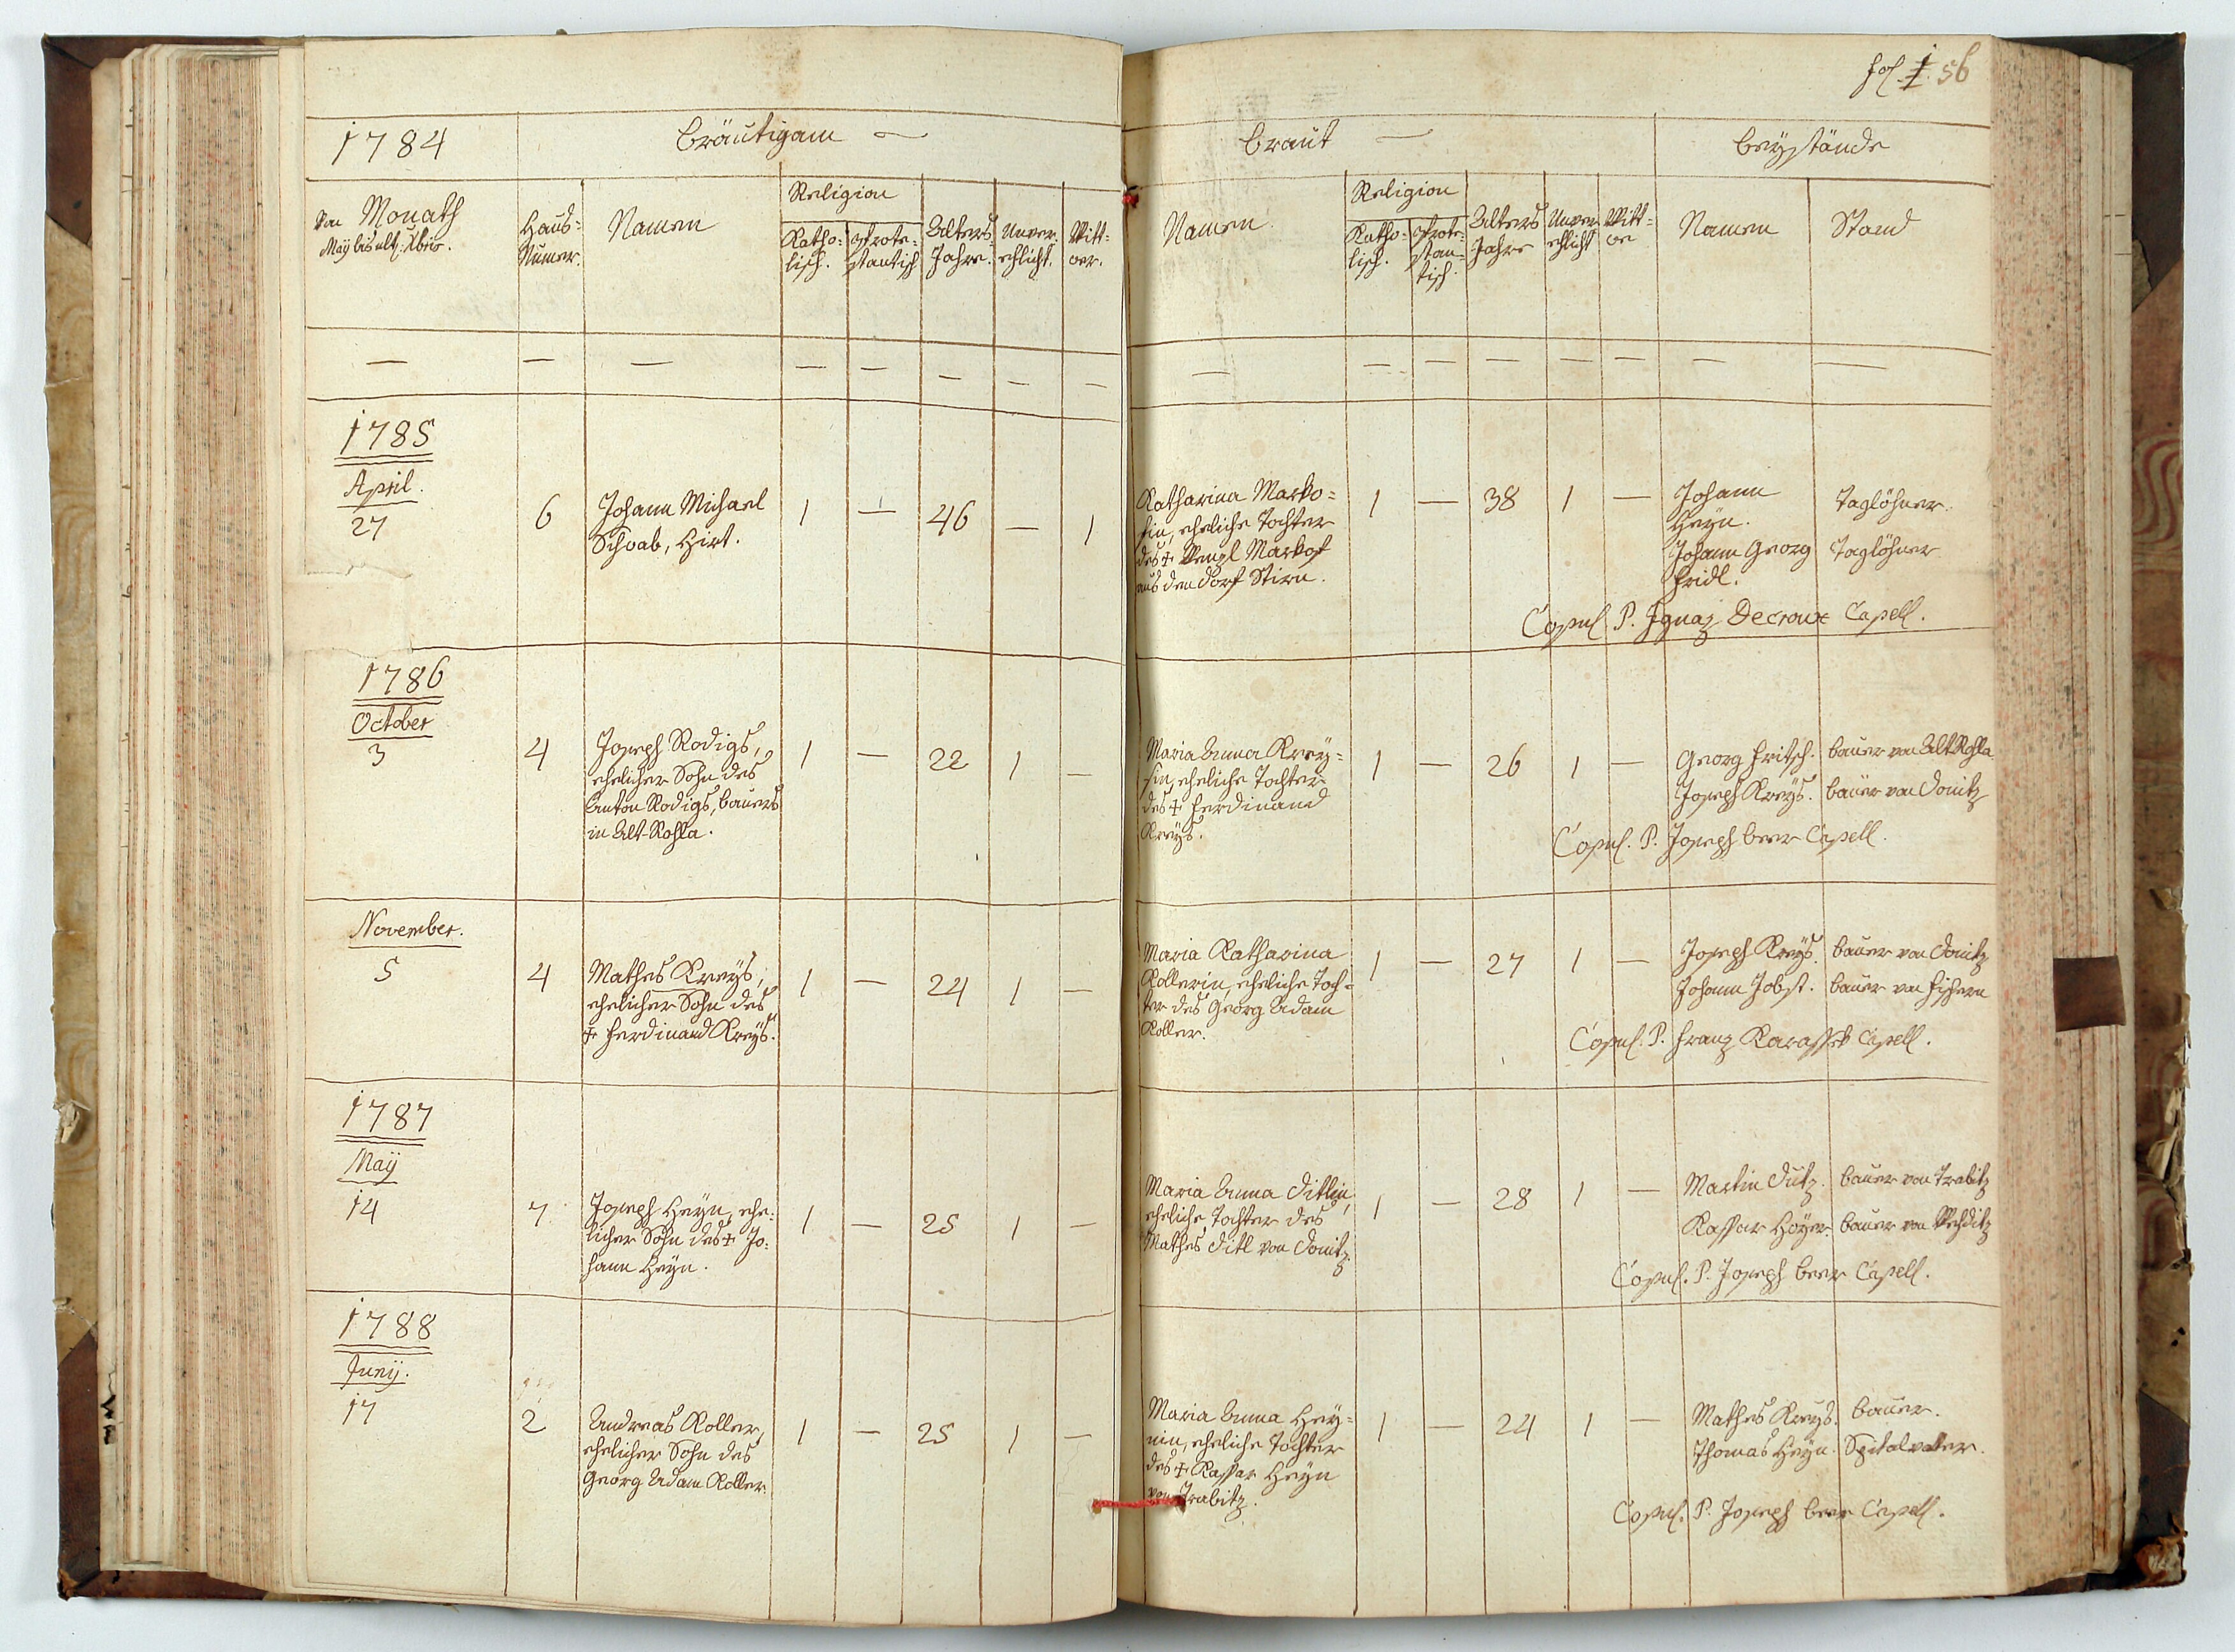 fol. 1. 56
1784
Bräutigam
Von Monath
May bis ult: Xbris.
Haus=
Numer.
Namen
Religion
Katho=
lisch.
Prote=
stantisch
Alters
Jahre.
Unver=
ehlicht.
Witt=
wer.
Braut
Beystände
Namen
Religion
Katho=
lisch.
Prote=
stan=
tisch.
Alters
Jahre
Unver
ehlicht
Witt=
we
Namen
Stand
— — — — — — — —
— — — — — — — —
1785
April.
27
6
Johann Michael
Schwab, Hirt.
1 — 46 — 1
Katharina Marko=
fin, eheliche Tochter
des + Wenzl Markof
aus dem Dorf Stirn.
1 — 38 1 —
Johann
Heyn.
Taglöhner.
Johann Georg
Fridl.
Taglöhner
Copul. P. Ignaz Decroux Capell.
1786
October
3
4
Joseph Rodigs,
ehelicher Sohn des
Anton Rodigs, Bauers
in Alt-Rohla.
1 — 22 1 —
Maria Anna Krey=
sin, eheliche Tochter
des + Ferdinand
Kreys.
1 — 26 1 —
Georg Fritsch. Bauer von Alt Rohla
Joseph Kreys. Bauer von Donitz
Copul. P. Joseph Beer Capell.
November.
5
4
Mathes Kreys,
ehelicher Sohn des
+ Ferdinand Kreys.
1 — 24 1 —
Maria Katharina
Kollerin, eheliche Toch=
ter des Georg Adam
Koller.
1 — 27 1 —
Joseph Kreys. Bauer von Donitz
Johann Jobst. Bauer von Fischern
Copul. P. Franz Karassek Capell.
1787
Maÿ
14
7
Joseph Heyn, ehe=
licher Sohn des + Jo=
hann Heyn.
1 — 25 1 —
Maria Anna Ditlin,
eheliche Tochter des
Mathes Ditl von Donitz
1 — 28 1 —
Martin Dutz. Bauer von Trabitz
Kaspar Hoyer. Bauer von Wehditz
Copul. P. Joseph Beer Capell.
1788
Junÿ.
17
2
Andreas Koller,
ehelicher Sohn des
Georg Adam Koller.
1 — 25 1 —
Maria Anna Hey=
nin, eheliche Tochter
des + Kaspar Heyn
von Trabitz.
1 — 24 1 —
Mathes Kreys. Bauer.
Thomas Heyn. Spitalvater.
Copul. P. Joseph Beer Capell.